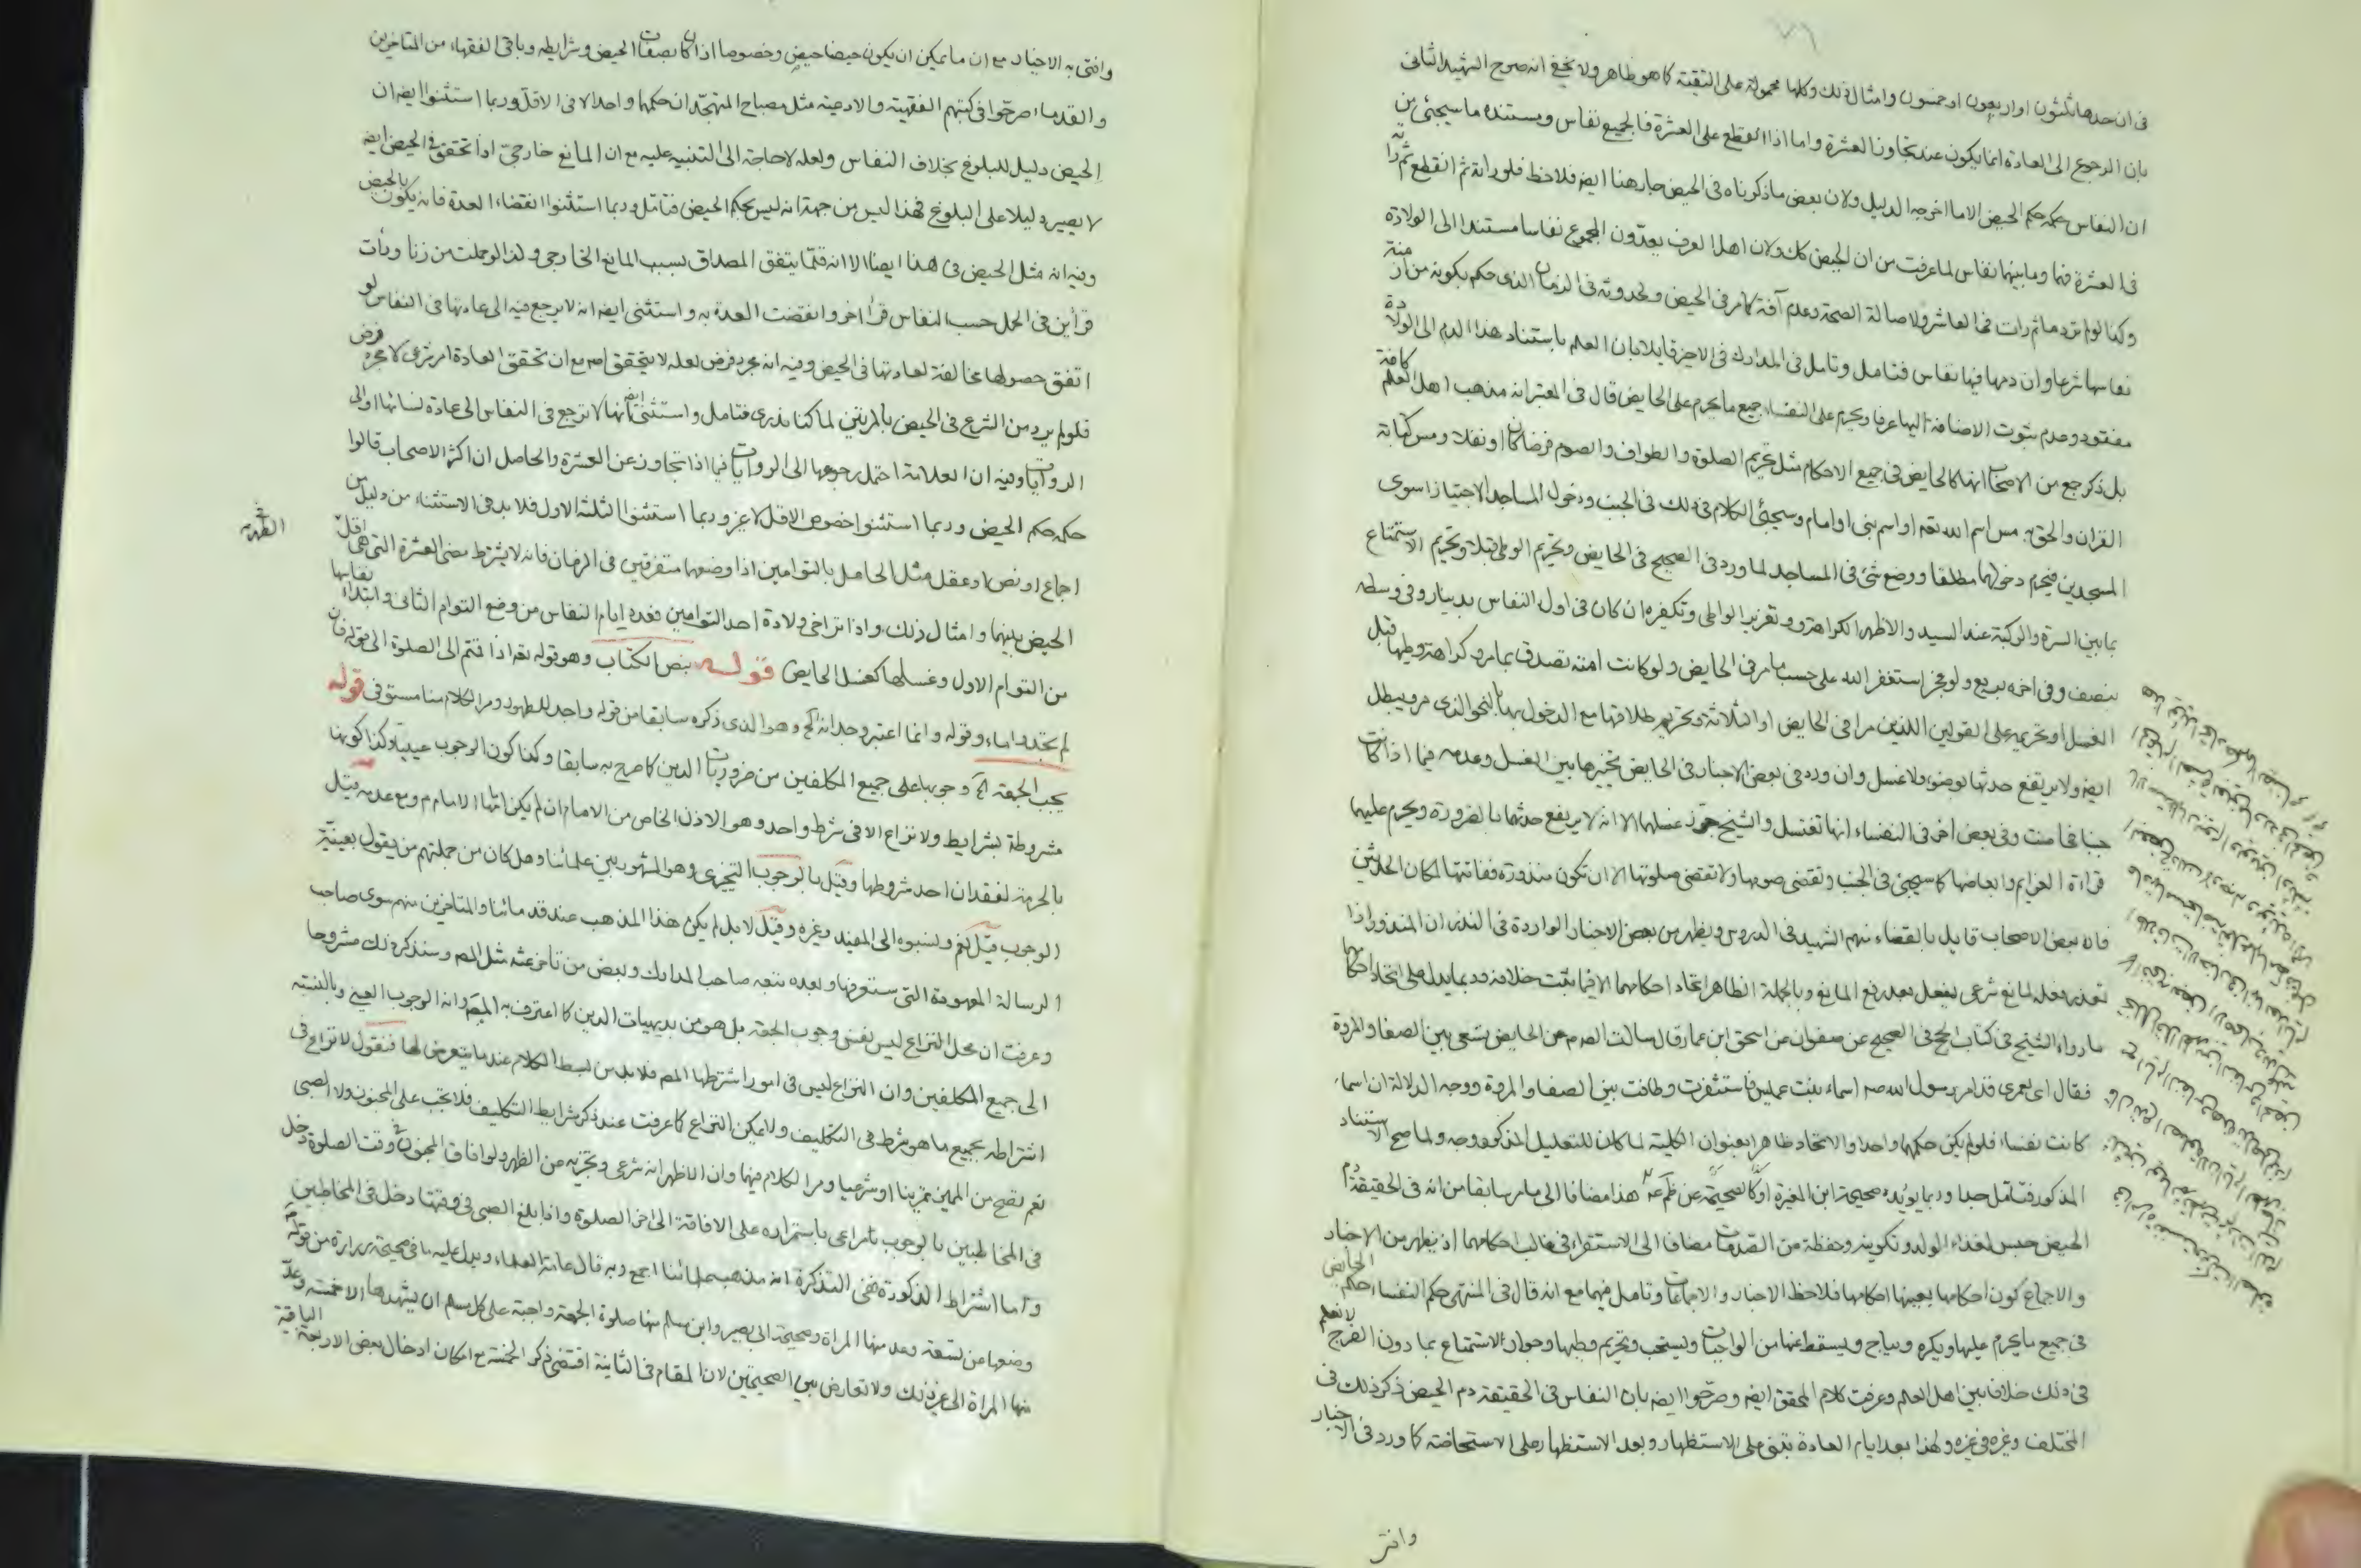 في ان حدها ثلثون او اربعون او خمسون وامثال ذلك وكلها محمولة على التقية كما هو ظاهر ولا يخفى انه صرح الشهيد الثاني
بان الرجوع الى العادة انما يكون عند تجاوز العشرة واما اذا انقطع على العشرة فالجميع نفاس ومستنده ما سيجئ من
ان النفاس حكمه حكم الحيض الا ما اخرجه الدليل ولان بعض ما ذكرناه في الحيض جار هنا ايضا فلاحظ فلو راته ثم انقطع ثم راته
في العشرة فهما وما بينهما نفاس لما عرفت من ان الحيض كك ولان اهل العرف يعدون المجموع نفاسا مستندا الى الولادة
وكذا لو لم تر دما ثم رات في العاشر ولاصالة الصحة وعدم آفة كما مر في الحيض ولحدوثه في الزمان الذي حكم بكونه من ازمنة
نفاسها شرعا وان دمها فيها نفاس فتامل وتامل في المدارك في الاخير قايلا بان العلم باستناد هذا الدم الى الولادة
مفقود وعدم ثبوت الاضافة اليها عرفا ويحرم على النفساء جميع ما يحرم على الحايض قال في المعتبر انه مذهب اهل العلم كافة
بل ذكر جمع من الاصحاب انها كالحايض في جميع الاحكام مثل تحريم الصلوة والطواف والصوم فرضا كان او نفلا ومس كتابة
القران والحق به مس اسم الله تعه او اسم نبي او امام وسيجئ الكلام في ذلك في الجنب ودخول المساجد الا جتيازا سوى
المسجدين فيحرم دخولهما مطلقا ووضع شئ في المساجد لما ورد في الصحيح في الحايض وتحريم الوطي قبلا وتحريم الاستمتاع
بما بين السرة والركبة عند السيد والاظهر الكراهة وتعزير الواطي وتكفيره ان كان في اول النفاس بدينار وفي وسطه
بنصف وفي اخره بربع ولو عجز استغفر الله على حسب ما مر في الحايض ولو كانت امته تصدق بما مر وكراهة وطيها قبل
الغسل او تحريمه على القولين اللذين مرا في الحايض او الثلاثة وتحريم طلاقها مع الدخول بها بالنحو الذي مر ويبطل
ايضا ولا يرتفع حدثها بوضوء ولا غسل وان ورد في بعض الاخبار في الحايض تخييرها بين الغسل وعدمه فيما اذا كانت
جنبا فحاضت وفي بعض اخر في النفساء انها تغتسل والشيخ جوز غسلهما الا انه لا يرفع حدثها بالضرورة ويحرم عليهما
قراءة العزايم وابعاضها كما سيجئ في الجنب وتقضي صومها ولا تقضي صلوتها الا ان تكون منذورة ففاتتها لمكان الحدثين
فان بعض الاصحاب قايل بالقضاء منهم الشهيد في الدروس ويظهر من بعض الاخبار الواردة في النذر ان المنذور اذا
تعذر فعله لمانع شرعي يفعل بعد رفع المانع وبالجملة الظاهر اتحاد احكامهما الا فيما يثبت خلافه وربما يدل على اتحاد احكامهما
ما رواه الشيخ في كتاب الحج في الصحيح عن صفوان عن اسحق ابن عمار قال سالت الصادق عن الحايض تسعى بين الصفا والمروة
فقال اي لعمري قد امر رسول الله صم اسماء بنت عميس فاستثفرت وطافت بين الصفا والمروة ووجه الدلالة ان اسماء
كانت نفساء فلو لم يكن حكمهما واحدا والاتحاد ظاهرا بعنوان الكلية لما كان للتعليل المذكور وجه ولما صح الاستناد
المذكور فتامل جدا وربما يؤيده صحيحة ابن المغيرة هذا مضافا الى ما مر سابقا من انه في الحقيقة دم
الحيض حبس لغذاء الولد وتكوينه وحفظه من الصدمات مضافا الى الاستقراء في غالب احكامهما اذ يظهر من الاخبار
والاجماع كون احكامها بعينها احكامها فلاحظ الاخبار والاجماعات وتامل فيهما مع انه قال في المنتهى حكم النفساء حكم الحايض
في جميع ما يحرم عليها ويكره ويباح ويسقط عنها من الواجبات ويستحب وتحريم وطيها وجواز الاستمتاع بما دون الفرج لا نعلم
في ذلك خلافا بين اهل العلم وعرفت كلام المحقق ايضا وصرحوا ايضا بان النفاس في الحقيقة دم الحيض ذكر ذلك في
المختلف وغيره في غيره ولهذا بعد ايام العادة تبنى على الاستظهار وبعد الاستظهار على الاستحاضة كما ورد في الاخبار
وافتى
وافتى به الاخيار مع ان ما يمكن ان يكون حيضا حيض وخصوصا اذا كان بصفات الحيض وشرايطه وباقي الفقهاء من المتاخرين
والقدماء صرحوا في كتبهم الفقهية والادعية مثل مصباح المتهجد ان حكمها واحد الا في الاقل وربما استثنوا ايضا ان
الحيض دليل للبلوغ بخلاف النفاس ولعله لا حاجة الى التنبيه عليه مع ان المانع خارجي اذا تحقق في الحيض ايضا
لا يصير دليلا على البلوغ فهذا ليس من جهة انه ليس بحكم الحيض فتامل وربما استثنوا انقضاء العدة فانه يكون بالحيض
وفيه انه مثل الحيض في هذا ايضا الا انه قلما يتفق المصداق بسبب المانع الخارجي ولذا لو حملت من زنا ورأت
قرأين في الحمل حسب النفاس قرأ اخر وانقضت العدة به واستثنى ايضا انه لا يرجع فيه الى عادتها في النفاس لو
اتفق حصولها مخالفة لعادتها في الحيض وفيه انه مجرد فرض لعله لا يتحقق اصلا مع ان تحقق العادة امر شرعي لا مجرد فرض
فلو لم يرد من الشرع في الحيض بالمرتين لما كنا ندري فتامل واستثنى ايضا انها لا ترجع في النفاس الى عادة نسائها او الى
الروايات وفيه ان العلامة احتمل رجوعها الى الروايات فيما اذا تجاوز عن العشرة والحاصل ان اكثر الاصحاب قالوا
حكمه حكم الحيض وربما استثنوا خصوص الاقل لا غير وربما استثنوا الثلثة الاول فلا بد في الاستثناء من دليل من
اجماع او نص او عقل مثل الحامل بالتوامين اذا وضعهما متفرقين في الزمان فانه لا يشترط مضي العشرة التي هي اقل
الحيض بينهما وامثال ذلك واذا تراخى ولادة احد التوامين فعدد ايام النفاس من وضع التوام الثاني وابتداء نفاسها
من التوام الاول وغسلها كغسل الحايض قوله بنص الكتاب وهو قوله تعه اذا قمتم الى الصلوة الى قوله فان
لم تجدوا ماء وقوله وانما اعتبر وجدانه الخ وهو الذي ذكره سابقا من قوله واجد للطهور ومر الكلام منا مستوفى قوله
يجب الجمعة الخ وجوبها على جميع المكلفين من ضروريات الدين كما صرح به سابقا وكذا كون الوجوب عينيا وكذا كونها
مشروطة بشرايط ولا نزاع الا في شرط واحد وهو الاذن الخاص من الامام ان لم يكن امامها الامام م ومع عدمه قيل
بالحرمة لفقدان احد شروطها وقيل بالوجوب التخييري وهو المشهور بين علمائنا وهل كان من جملتهم من يقول بعينية
الوجوب قيل نعم ونسبوه الى المفيد وغيره وقيل لا بل لم يكن هذا المذهب عند قدمائنا والمتاخرين منهم سوى صاحب
الرسالة المعهودة التي ستعرفها وبعده تبعه صاحب المدارك وبعض من تاخر عنه مثل المصه وسنذكر ذلك مشروحا
وعرفت ان محل النزاع ليس نفس وجوب الجمعة بل هو من بديهيات الدين كما اعترف به المصه وانه الوجوب العيني وبالنسبة
الى جميع المكلفين وان النزاع ليس في امور اشترطها المصه فلا بد من بسط الكلام عند ما يتعرض لها فنقول لا نزاع في
اشتراطه بجميع ما هو شرط في التكليف ولا يمكن النزاع كما عرفت عند ذكر شرايط التكليف فلا تجب على المجنون ولا الصبي
نعم تصح من المميز تمرينا او شرعيا ومر الكلام فيهما وان الاظهر انه شرعي وتجزيه من الظهر ولو افاق المجنون في وقت الصلوة دخل
في المخاطبين بالوجوب مراعى باستمراره على الافاقة الى اخر الصلوة واذا بلغ الصبي في وقتها دخل في المخاطبين
واما اشتراط الذكورة ففي التذكرة انه مذهب علمائنا اجمع وبه قال عامة العلماء ويدل عليه ما في صحيحة زرارة من قوله م
وضعها عن تسعة وعد منها المراة وصحيحة ابي بصير وابن مسلم منها صلوة الجمعة واجبة على كل مسلم ان يشهدها الا خمسة وعد
منها المراة الى غير ذلك ولا تعارض بين الصحيحتين لان المقام في الثانية اقتضى ذكر الخمسة مع امكان ادخال بعض الاربعة الباقية